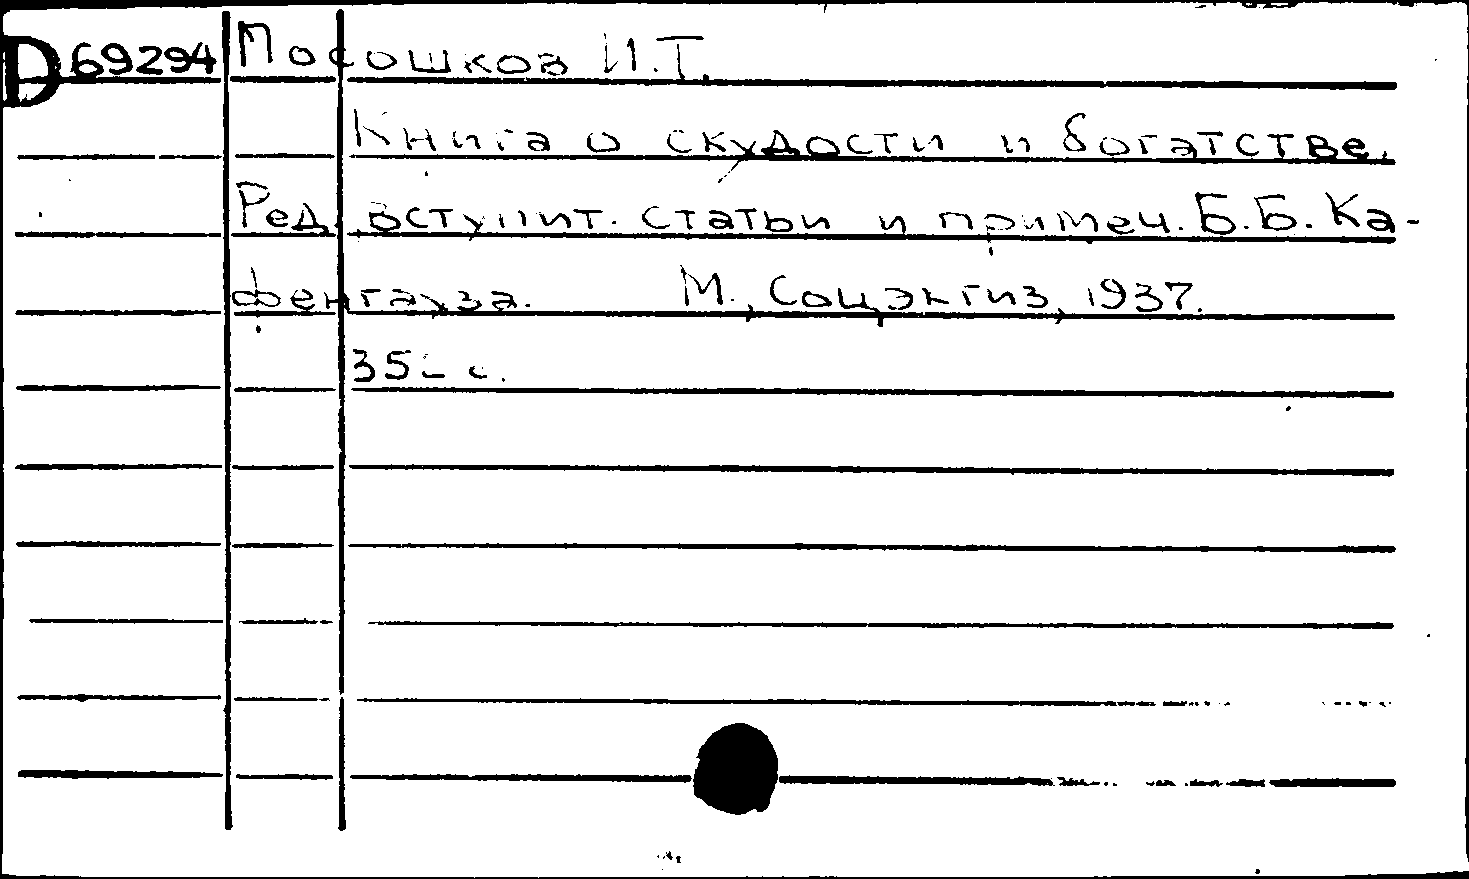 D 69294 Посошков И.Т.
Книга о скудости и богатстве.
Ред., вступит. статьи и примеч. Б.Б. Ка-
фенгауза. М., Соцэкгиз, 1937.
с.